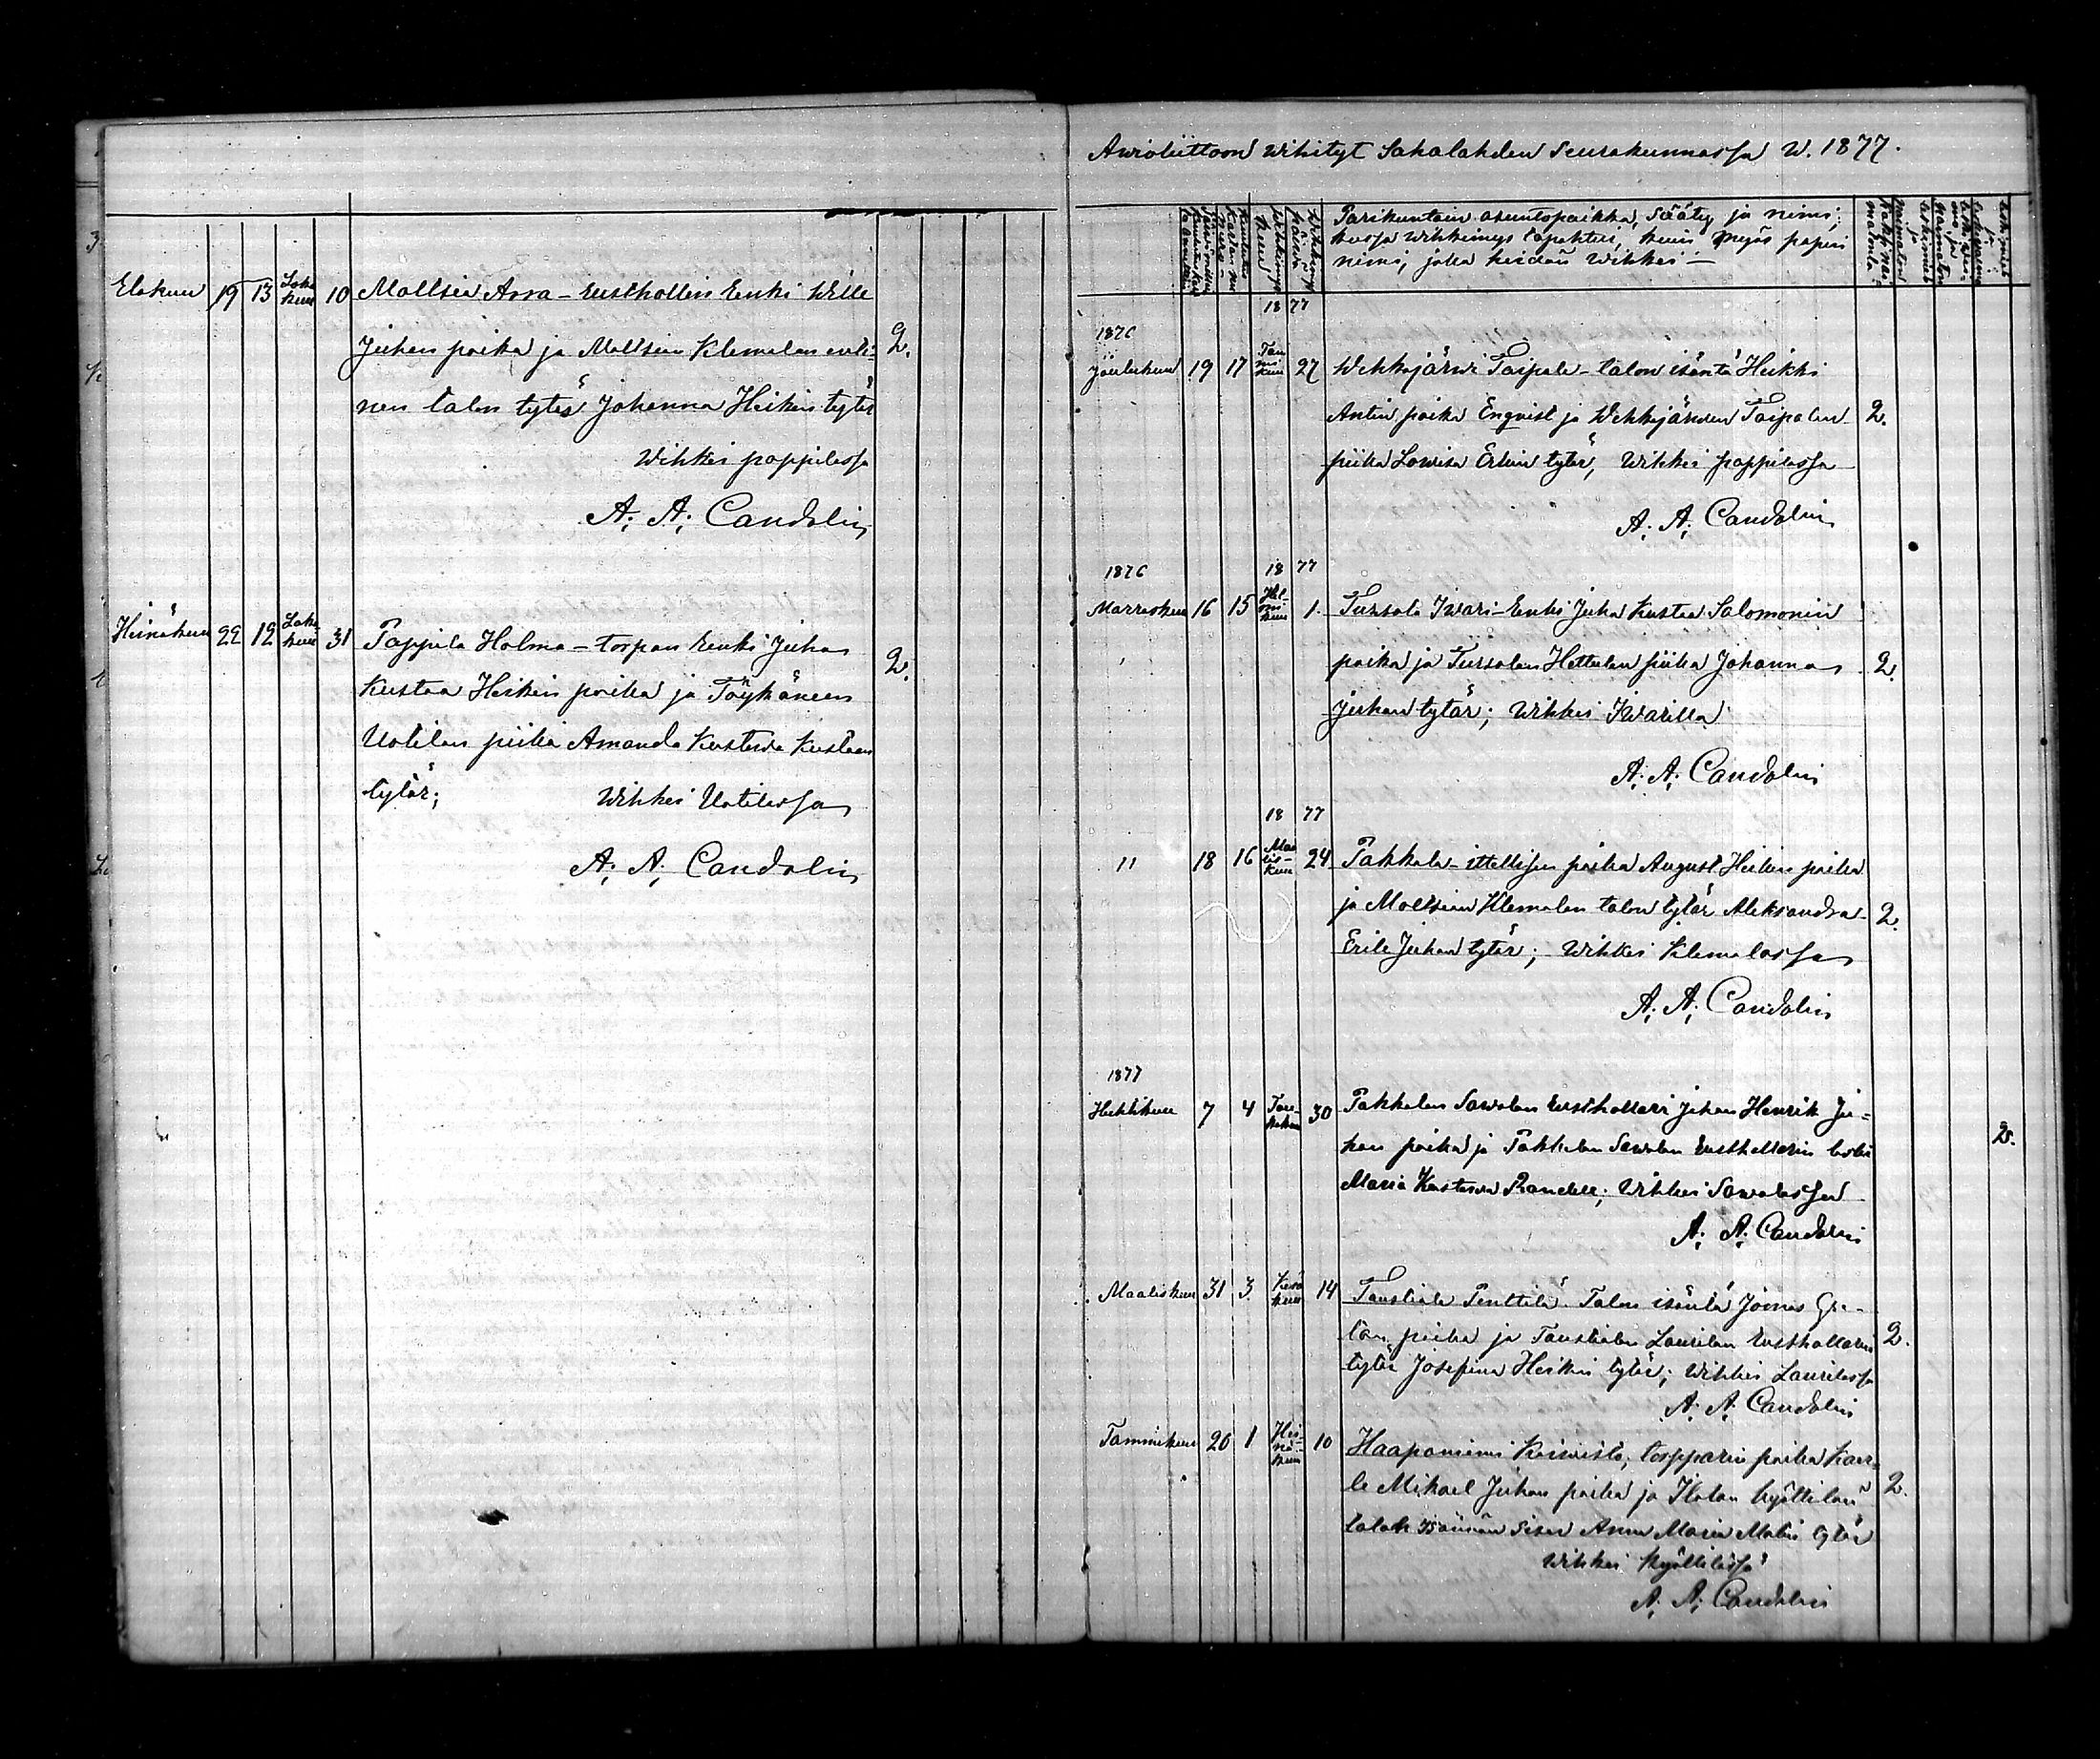 Elokuu 19 13 Loka kuu 10 Moltsia Arra - Rusthollin Renki Wille
Juhan poika ja Moltsian Klemolan enti- 2.
nen talon tytär Johanna Heikin tytär
Wihkei pappilassa
A. A. Candolin
Heinäkuu 22 12 Loka kuu 31 Pappila Holma - torpan Renki Juha
Kustaa Heikin poika ja Töyhänen 2.
Uotilan piika Amanda Kustava Kustaan
tytär; Wihkei Uotilassa
A. A. Candolin
Awioliittoon wihityt Sahalahden Seurakunnassa W. 1877.
Parikuntain asuntopaikka, Sääty ja nimi;
kussa wihkimys tapahtui, kuin myös papin
nimi, joka heidän wihkei —
18 77
1876
Joulukuu 19 17 Tam mi kuu 27 Wehkajärwi Taipale - talon isäntä Heikki
Antin poika Enqvist ja Wehkajärwen Taipalen 2.
piika Lowisa Erkin tytär, Wihkei pappilassa
A. A. Candolin
1876 18 77
Marraskuu 16 15 Hel mi- kuu 1. Tursola Iwari - Renki Juha Kustaa Salomonin
poika ja Tursolan Hettulan piika Johanna 2.
Juhan tytär; Wihkei Iwarilla
A. A. Candolin
18 77
11 18 16 Maa lis- kuu 24 Pakkala - itellisen poika August Heikin poika
ja Moltsian Klemolan talon tytär Aleksandra 2.
Erika Juhan tytär; Wihkei Klemolassa
A. A. Candolin
1877
Huhtikuu 7 4 Tou- kokuu 30 Pakkalan Sawolan Rusthollari Juhan Henrik Ju=
han poika ja Pakkalan Sawolan Rusthollarin leski 2.
Maria Kustava Randell; Wihkei Sawolassa
A. A. Candolin
Maaliskuu 31 3 Kesä kuu 14 Taustiala Penttilä Talon isäntä Joonas
poika ja Taustialan Laurilan Rusthollarin 2.
tytär Josefina Heikin tytär; Wihkei Laurilassa
A. A. Candolin
Tammikuu 26 1 Hei- nä- kuu 10 Haaponiemi Koiwisto, torpparin poika Kaar=
le Mikael Juhan poika ja Ilolan Kyöttilän 2.
talon isännän sisar Anna Maria Matin tytär
Wihkei Kyöttilässä
A. A. Candolin